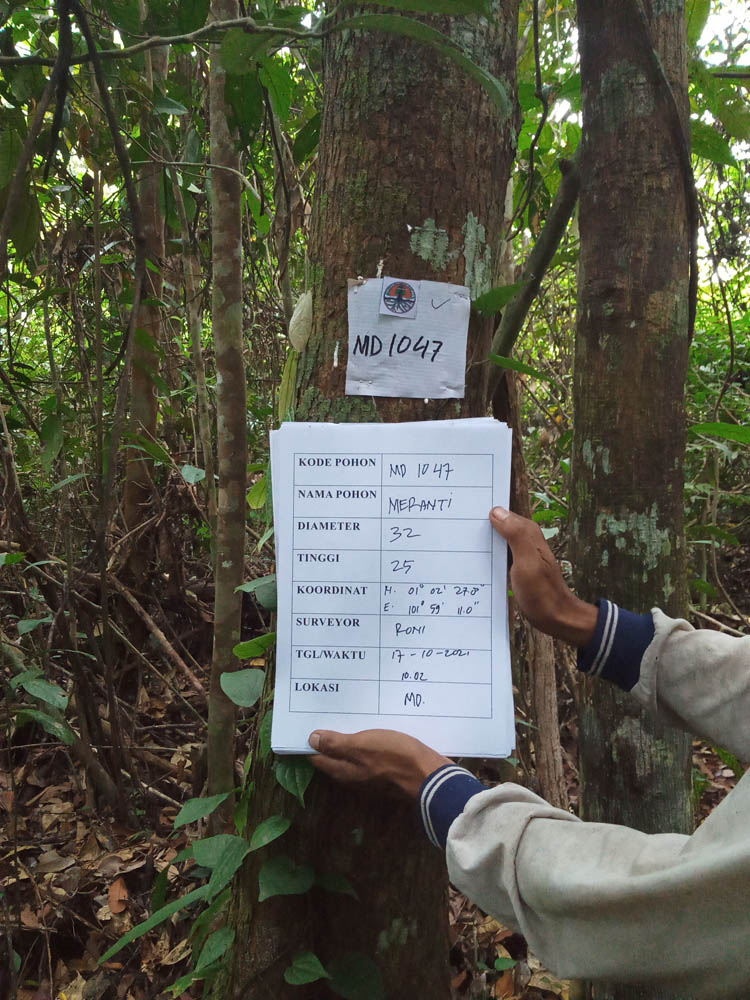 MD 1047
KODE POHON MD 1047
NAMA POHON MERANTi
DIAMETER 32
TINGGI 25
KOORDINAT N. 01° 02' 27.8"
E. 101° 59' 11.0"
SURVEYOR RONI
TGL/WAKTU 17-10-2021
10.02
LOKASI MD.